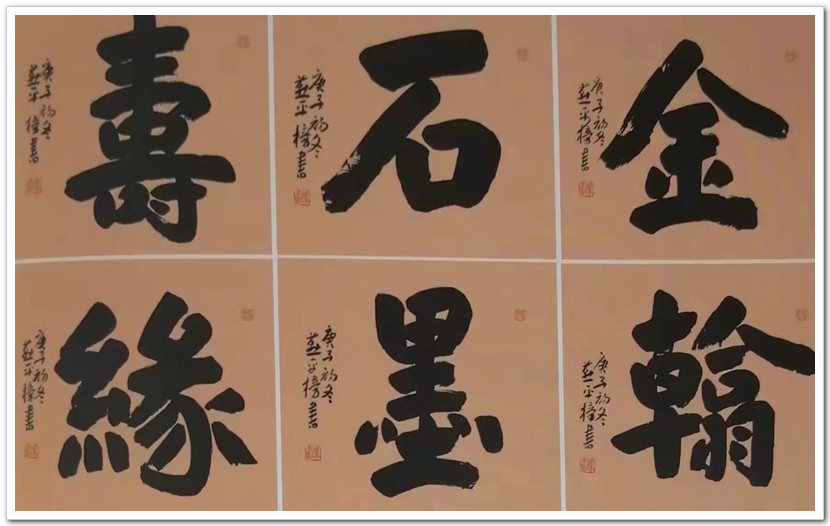 金石壽
庚子初冬
燕平榜書
庚子初冬
燕平榜書
庚子初冬
燕平榜書
翰墨緣
庚子初冬
燕平榜書
庚子初冬
燕平榜書
庚子初冬
燕平榜書